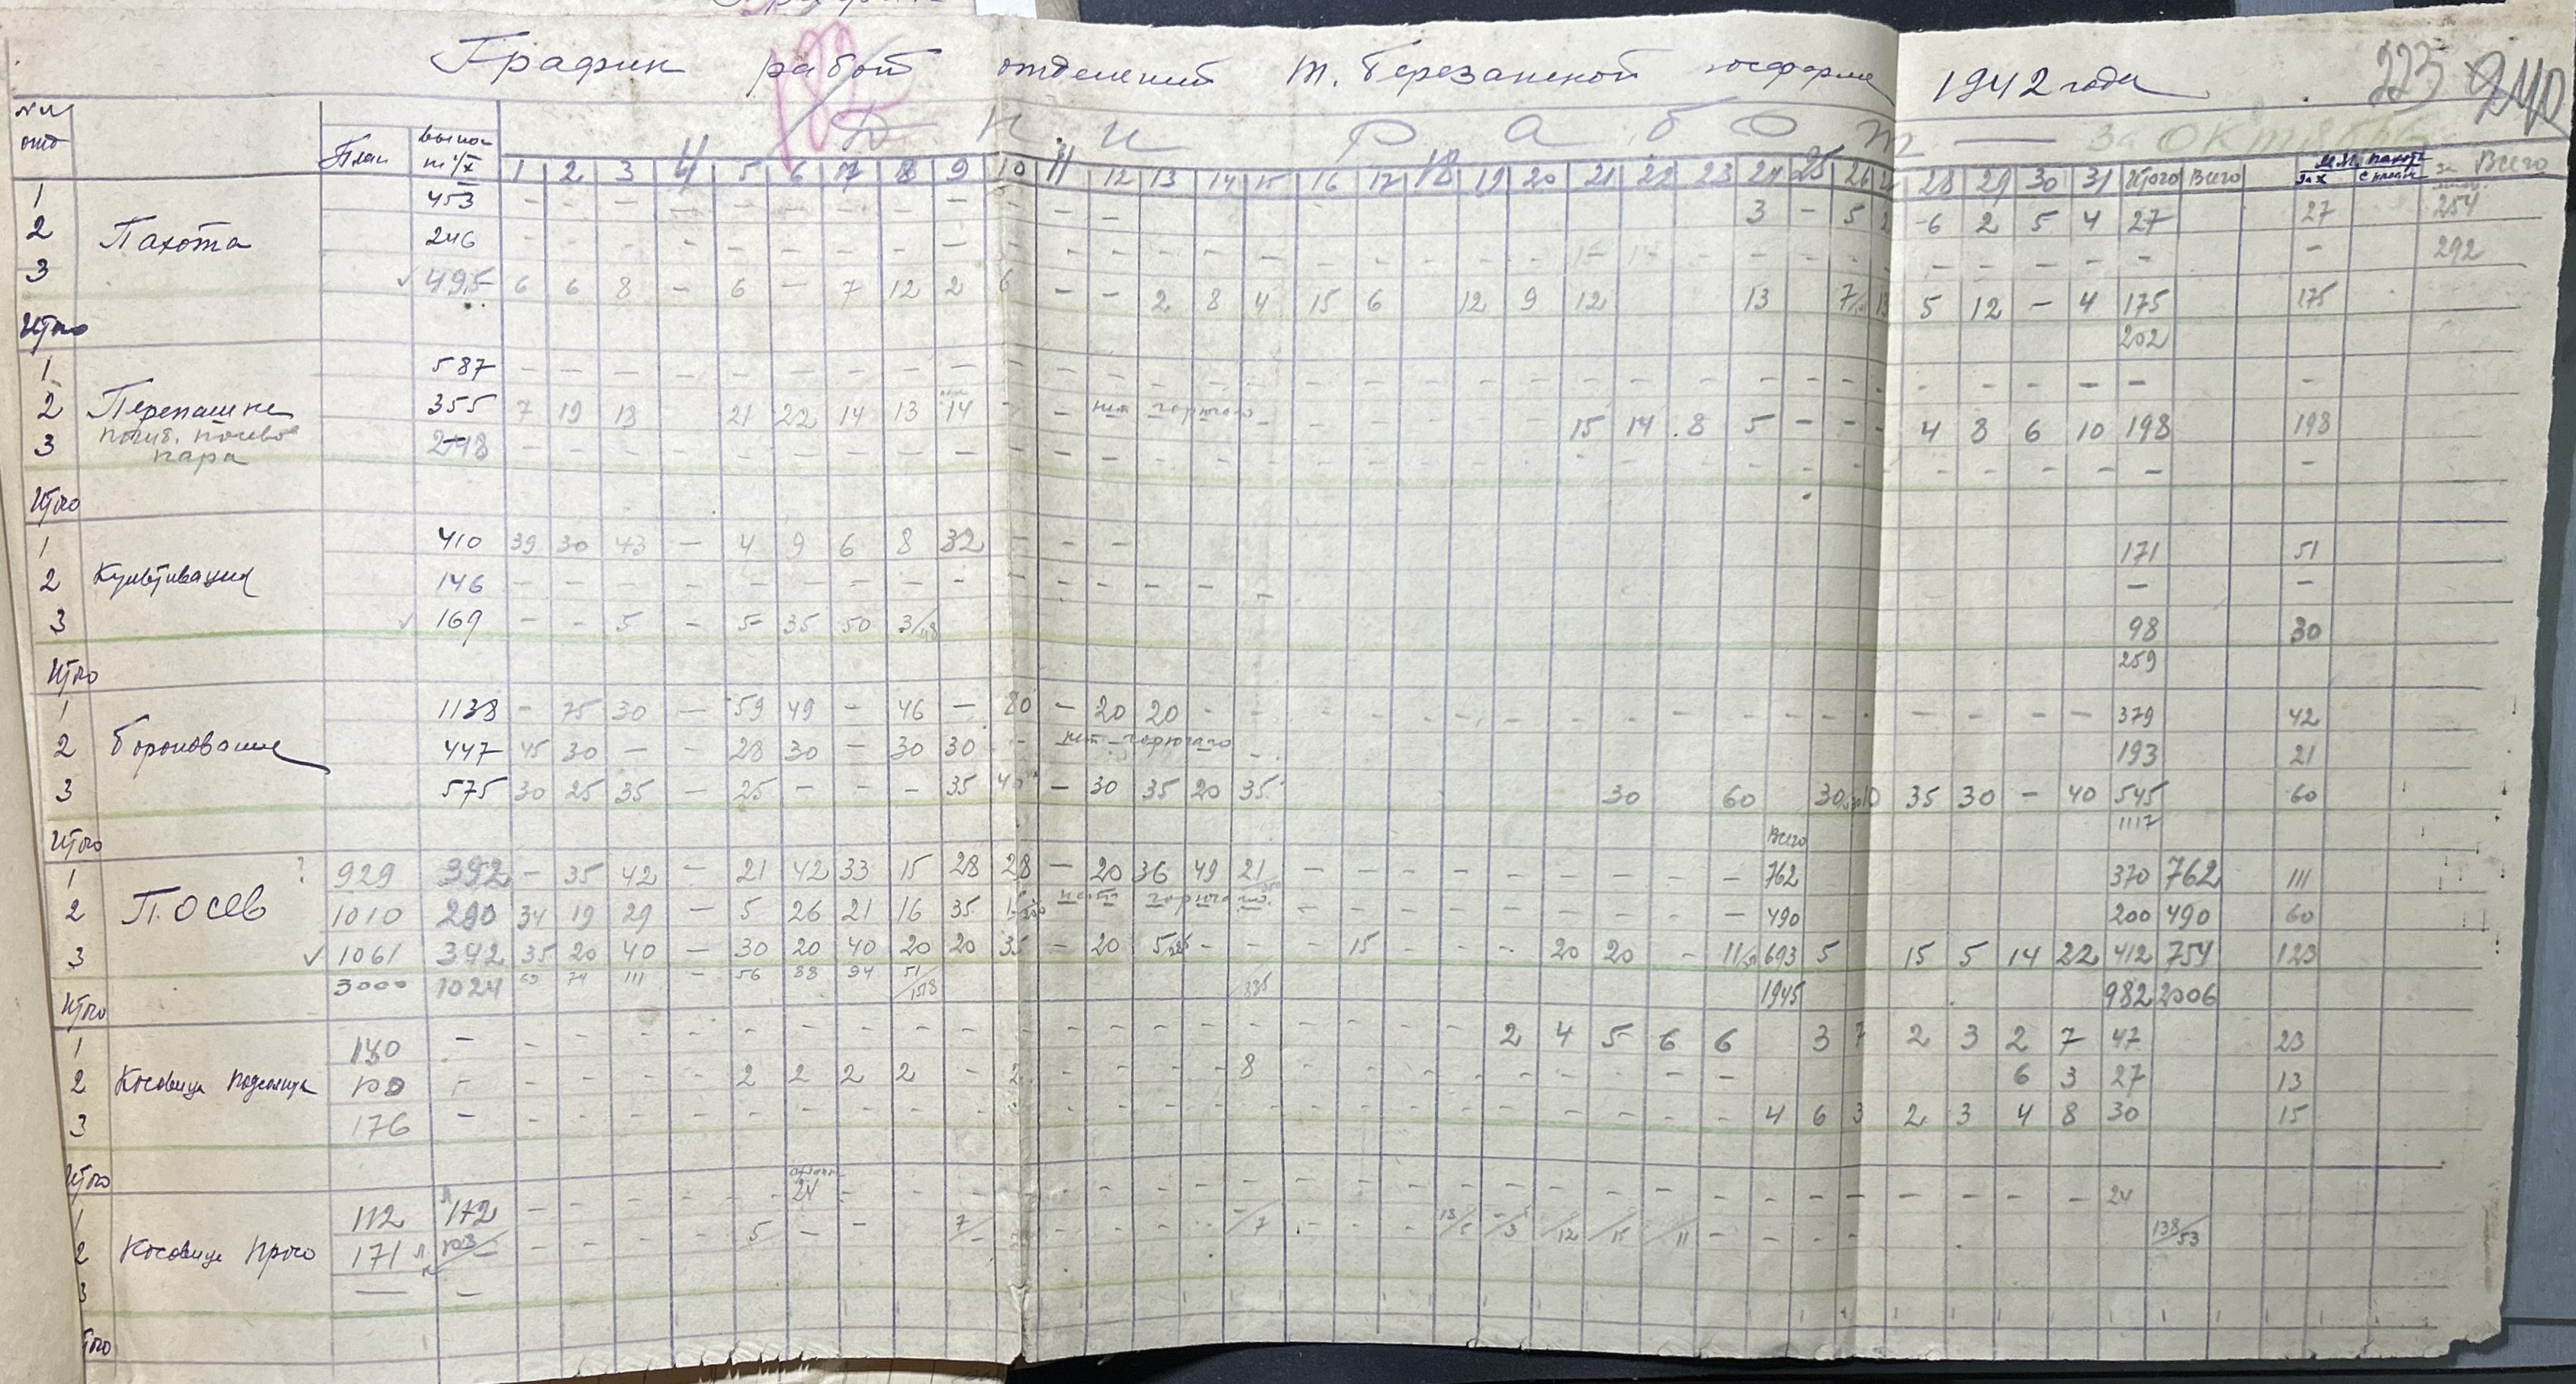 График работ отделений т. Березанской госфермы 1942 года
223 240
№№ отд План выпол. на 1/X Дни Работ — За Октябрь
1 2 3 4 5 6 7 8 9 10 11 12 13 14 15 16 17 18 19 20 21 22 23 24 25 26 28 29 30 31 Итого Всего за X Всего
1 453 – – – – – – – – – – – – 3 – 5 2 6 2 5 4 27 27 254
2 Пахота 246 – – – – – – – – – – – – – – – – – – 292
3 ✓ 495 6 6 8 – 6 – 7 12 2 6 – – 2 8 4 15 6 12 9 12 13 7 13 5 12 – 4 175 175
Итого 202
1 587 – – – – – – – – – – – – – – – – – –
2 Перепашка 355 7 19 13 21 22 14 13 14 – – нет горючего – – – – – – 15 14 8 5 – – – 4 8 6 10 198 198
3 погиб. посевов пара 248 – – – – – – – – – – – – – – – –
Итого
1 410 39 30 43 – 4 9 6 8 32 – – – 171 51
2 Культивация 146 – – – – – – – – – – – – – – – – –
3 ✓ 169 – – 5 – 5 35 50 3/98 98 30
Итого 259
1 1138 – 75 30 – 59 49 – 46 – 80 – 20 20 – – – – – – – – – – – – – – – – – 379 42
2 Боронование 447 45 30 – – 28 30 – 30 30 – нет горючего – 193 21
3 575 30 25 35 – 25 – – – 35 40 – 30 35 20 35 30 60 30 10 35 30 – 40 545 60
Итого Всего 1117
1 ? 929 392 – 35 42 – 21 42 33 15 28 28 – 20 36 49 21 – – – – – – – – – 762 370 762 111
2 Посев 1010 290 34 19 29 – 5 26 21 16 35 нет горючего – – – – – – – – – 490 200 490 60
3 ✓ 1061 342 35 20 40 – 30 20 40 20 20 35 – 20 5 – – – 15 – – 20 20 – 11 693 5 15 5 14 22 412 754 123
3000 1024 69 74 111 – 56 88 94 51/1518 1945 982 2006
Итого
1 180 – – – – – – – – – – – – – – – – – – – 2 4 5 6 6 3 7 2 3 2 7 47 23
2 Косовица подсолнуха 100 – – – – – 2 2 2 2 – 2 – – – – 8 – – – – – – – – 6 3 27 13
3 176 – – – – – – – – – – – – – – – – – – – – – – – – 4 6 3 2 3 4 8 30 15
Итого
1 112 172 – – – – – 24 – – – – – – – – – – – – – – – – – – – – – – – – – 24
2 Косовица просо 171 103 – – – – 5 – – 7/– – – – – –/7 – – – 13/5 –/3 –/12 –/15 –/11 – – – – 138/53
3 — –
Итого